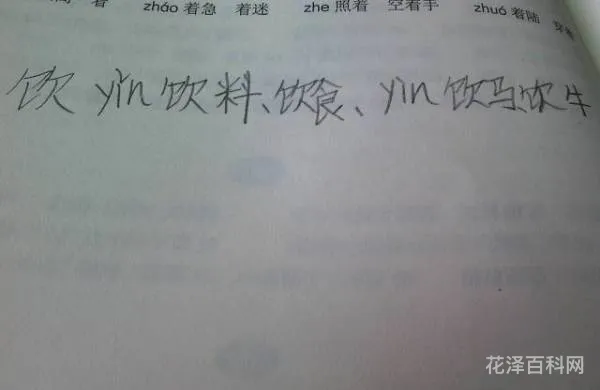 着 zháo 着急 着迷 zhe 照着 空着手 zhuó 着陆
饮 yǐn 饮料、饮食、yìn 饮马、饮牛
花泽百科网